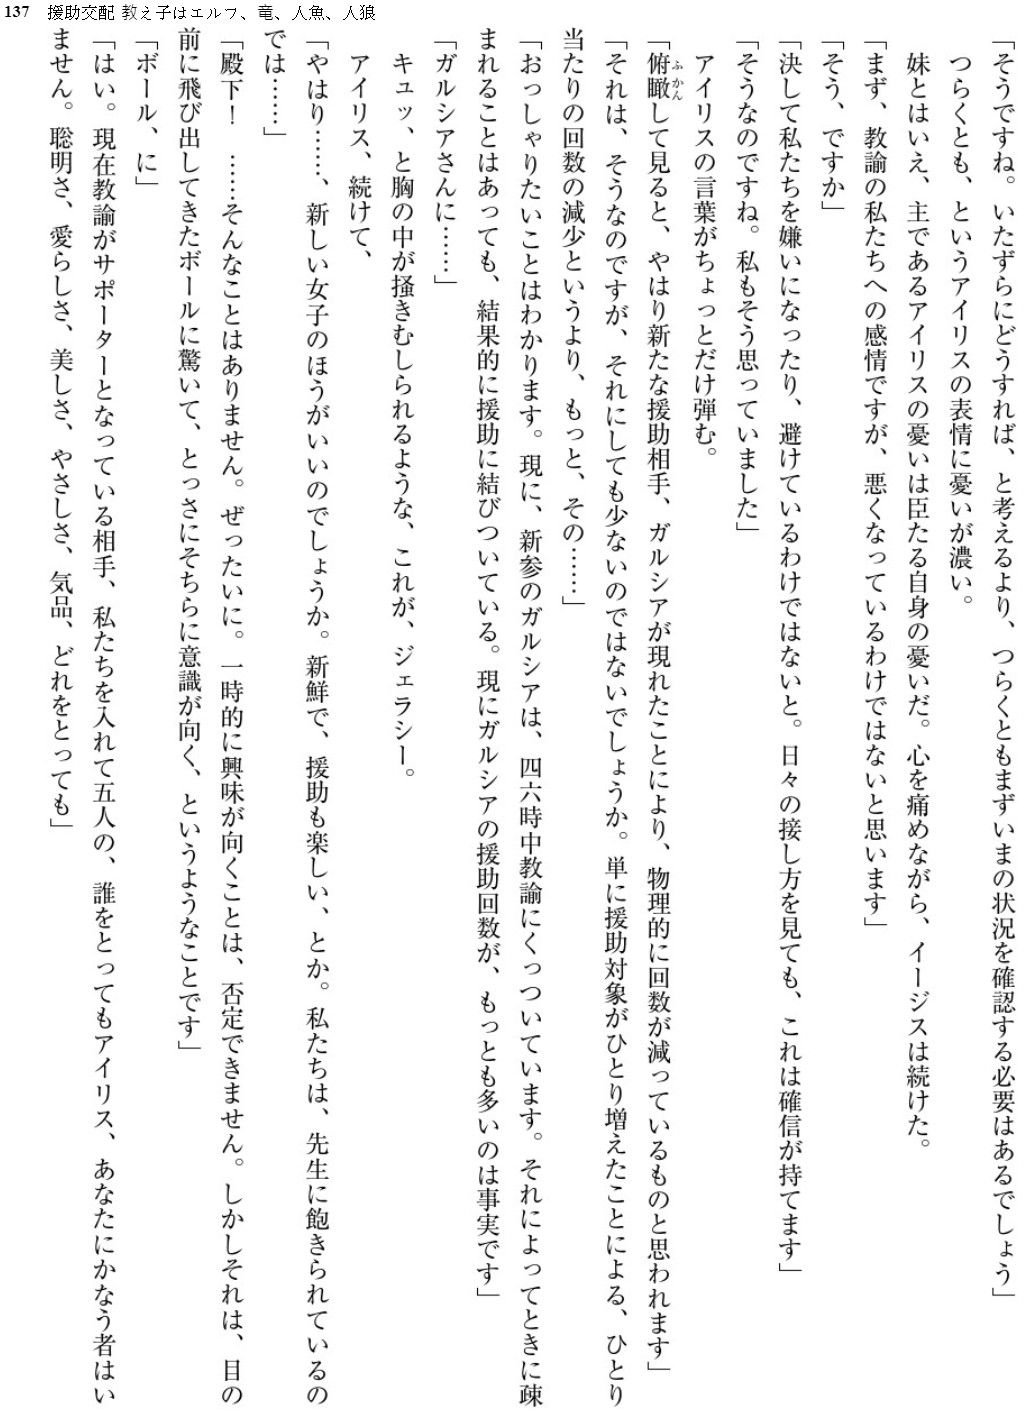 137 援助交配 教え子はエルフ、竜、人魚、人狼
「そうですね。いたずらにどうすれば、と考えるより、つらくともまずいまの状況を確認する必要はあるでしょう」
つらくとも、というアイリスの表情に憂いが濃い。
妹とはいえ、主であるアイリスの憂いは臣たる自身の憂いだ。心を痛めながら、イージスは続けた。
「まず、教諭の私たちへの感情ですが、悪くなっているわけではないと思います」
「そう、ですか」
「決して私たちを嫌いになったり、避けているわけではないと。日々の接し方を見ても、これは確信が持てます」
「そうなのですね。私もそう思っていました」
アイリスの言葉がちょっとだけ弾む。
「俯瞰ふかんして見ると、やはり新たな援助相手、ガルシアが現れたことにより、物理的に回数が減っているものと思われます」
「それは、そうなのですが、それにしても少ないのではないでしょうか。単に援助対象がひとり増えたことによる、ひとり
当たりの回数の減少というより、もっと、その……」
「おっしゃりたいことはわかります。現に、新参のガルシアは、四六時中教諭にくっついています。それによってときに疎
まれることはあっても、結果的に援助に結びついている。現にガルシアの援助回数が、もっとも多いのは事実です」
「ガルシアさんに……」
キュッ、と胸の中が掻きむしられるような、これが、ジェラシー。
アイリス、続けて、
「やはり……、新しい女子のほうがいいのでしょうか。新鮮で、援助も楽しい、とか。私たちは、先生に飽きられているの
では……」
「殿下！　……そんなことはありません。ぜったいに。一時的に興味が向くことは、否定できません。しかしそれは、目の
前に飛び出してきたボールに驚いて、とっさにそちらに意識が向く、というようなことです」
「ボール、に」
「はい。現在教諭がサポーターとなっている相手、私たちを入れて五人の、誰をとってもアイリス、あなたにかなう者はい
ません。聡明さ、愛らしさ、美しさ、やさしさ、気品、どれをとっても」